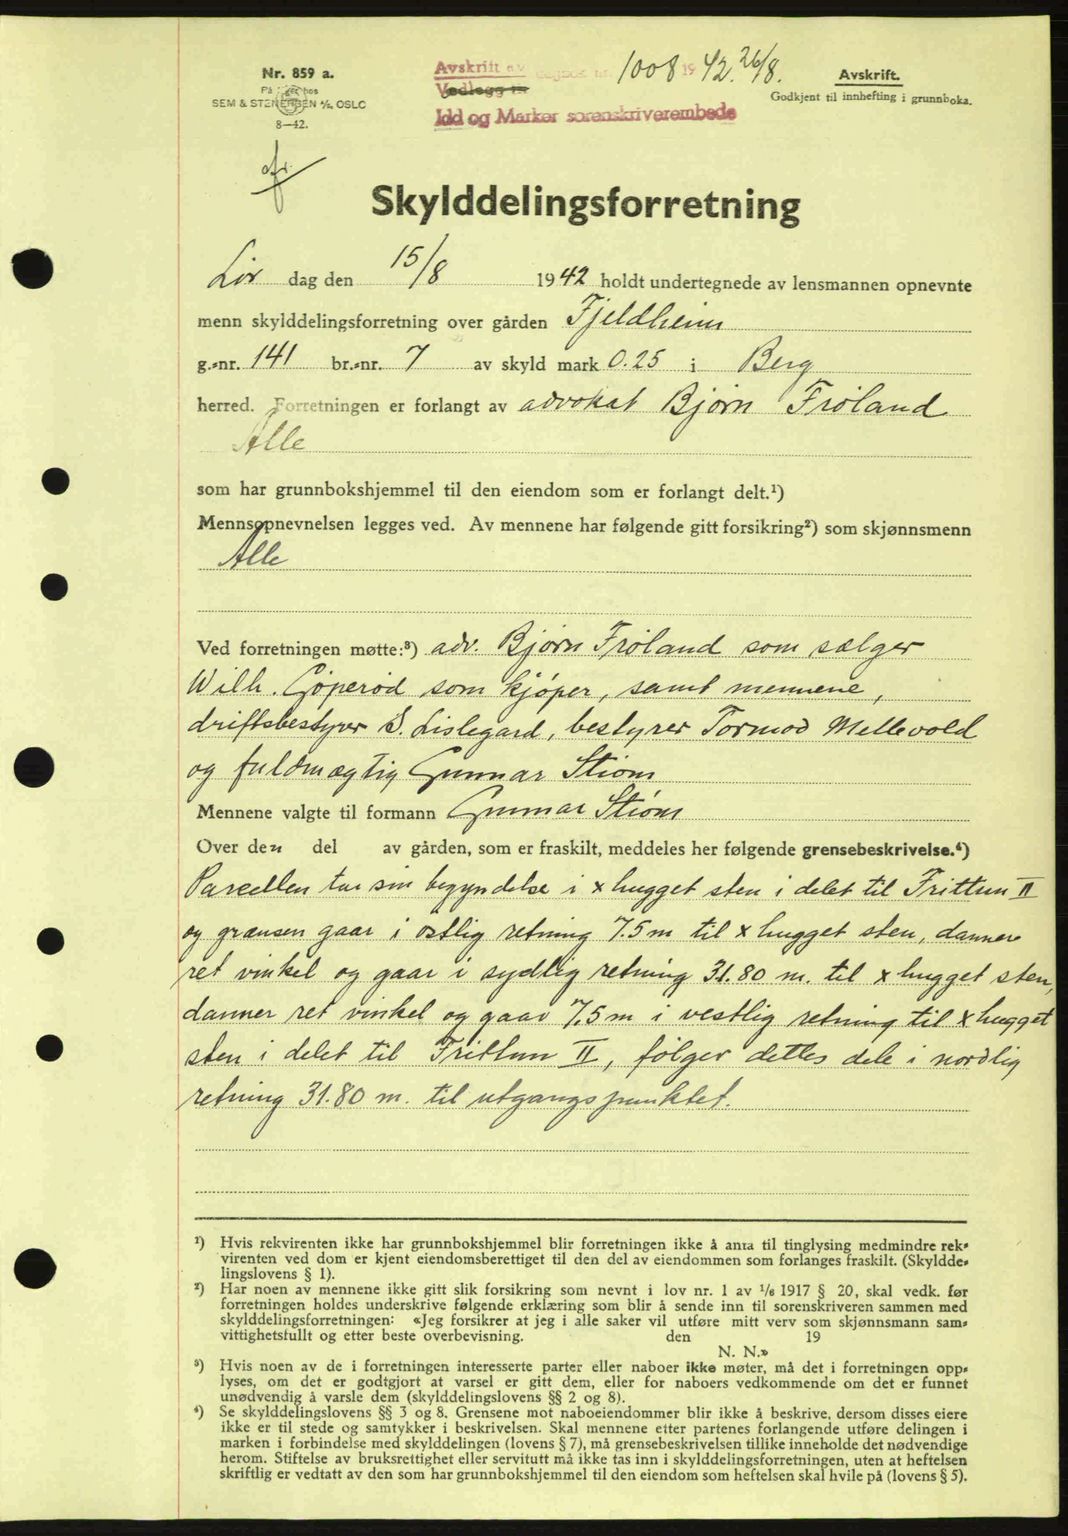 Nr. 859 a.
SEM & STENERSEN A/S, OSLO
8—42.
Avskrift av dagbok nr. 1008 1942. 26/8.
Vedlegg nr.
Idd og Marker sorenskriverembede
Avskrift.
Godkjent til innhefting i grunnboka.
Skylddelingsforretning
Lør dag den 15/8 1942 holdt undertegnede av lensmannen opnevnte
menn skylddelingsforretning over gården Fjeldheim
g.-nr. 141 br.-nr. 7 av skyld mark 0.25 i Berg
herred. Forretningen er forlangt av advokat Bjørn Frøland
Alle
som har grunnbokshjemmel til den eiendom som er forlangt delt.¹)
Mennsopnevnelsen legges ved. Av mennene har følgende gitt forsikring²) som skjønnsmenn
Alle
Ved forretningen møtte:³) adv. Bjørn Frøland som sælger
Wilh. Gøperød som kjøper, samt mennene,
driftsbestyrer S. Lislegard, bestyrer Tormod Mellevold
og fuldmægtig Gunnar Strøm
Mennene valgte til formann Gunnar Strøm
Over den del av gården, som er fraskilt, meddeles her følgende grensebeskrivelse.⁴)
Parcellen tar sin begyndelse i x hugget sten i delet til Frittun II
og grænsen gaar i østlig retning 7.5 m til x hugget sten, danner
ret vinkel og gaar i sydlig retning 31.80 m. til x hugget sten,
danner ret vinkel og gaar 7,5 m i vestlig retning til x hugget
sten i delet til Frittun II, følger dettes dele i nordlig
retning 31.80 m. til utgangspunktet.
¹) Hvis rekvirenten ikke har grunnbokshjemmel blir forretningen ikke å anta til tinglysing medmindre rek-
virenten ved dom er kjent eiendomsberettiget til den del av eiendommen som forlanges fraskilt. (Skyldde-
lingslovens § 1).
²) Har noen av mennene ikke gitt slik forsikring som nevnt i lov nr. 1 av 1/6 1917 § 20, skal vedk. før
forretningen holdes underskrive følgende erklæring som blir å sende inn til sorenskriveren sammen med
skylddelingsforretningen: «Jeg forsikrer at jeg i alle saker vil utføre mitt verv som skjønnsmann sam-
vittighetsfullt og etter beste overbevisning. den 19
N. N.»
³) Hvis noen av de i forretningen interesserte parter eller naboer ikke møter, må det i forretningen opp-
lyses, om det er godtgjort at varsel er gitt dem, eller for naboers vedkommende om det er funnet
unødvendig å varsle dem (skylddelingslovens §§ 2 og 8).
⁴) Se skylddelingslovens §§ 3 og 8. Grensene mot naboeiendommer blir ikke å beskrive, dersom disses eiere
ikke er til stede og samtykker i beskrivelsen. Skal mennene etter partenes forlangende utføre delingen i
marken i forbindelse med skylddelingen (lovens § 7), må grensebeskrivelsen tillike inneholde det nødvendige
herom. Stiftelse av bruksrettighet eller servitutt må ikke tas inn i skylddelingsforretningen, uten at heftelsen
skriftlig er vedtatt av den som har grunnbokshjemmel til den eiendom som heftelsen skal hvile på (lovens § 5).